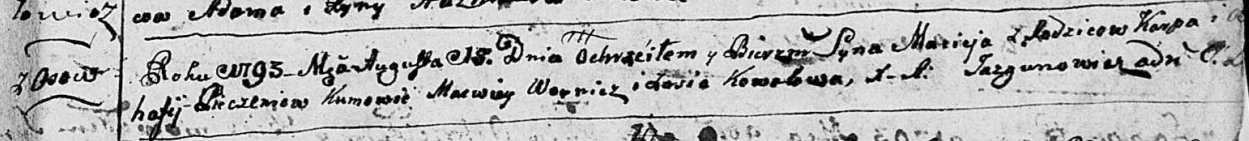 łowicz wa Adama i
z Osow Roku 1793 Mca Augusta 15. Dnia Ochrzciłem y Bierzm. Syna Macieja z Rodzicow Karpa i A
hafij Pieczeniow Kumowie Macwiey Wornicz i Łucia Kowalowa, X. A. Jazgunowicz adm. C.